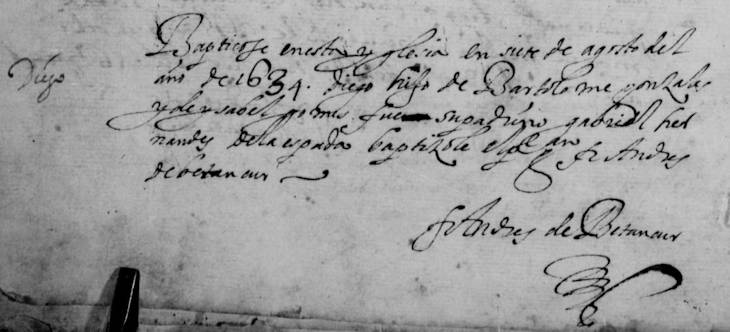 Diego
Baptiçose en esta yglesia en siete de agosto del
año de 1634. diego hijo de Bartolome gonzales
y de ysabel gomes. fue su padrino gabriel her
nandes de la espada baptizole el pe fr Andres
de betancur
fr Andres de Betancur